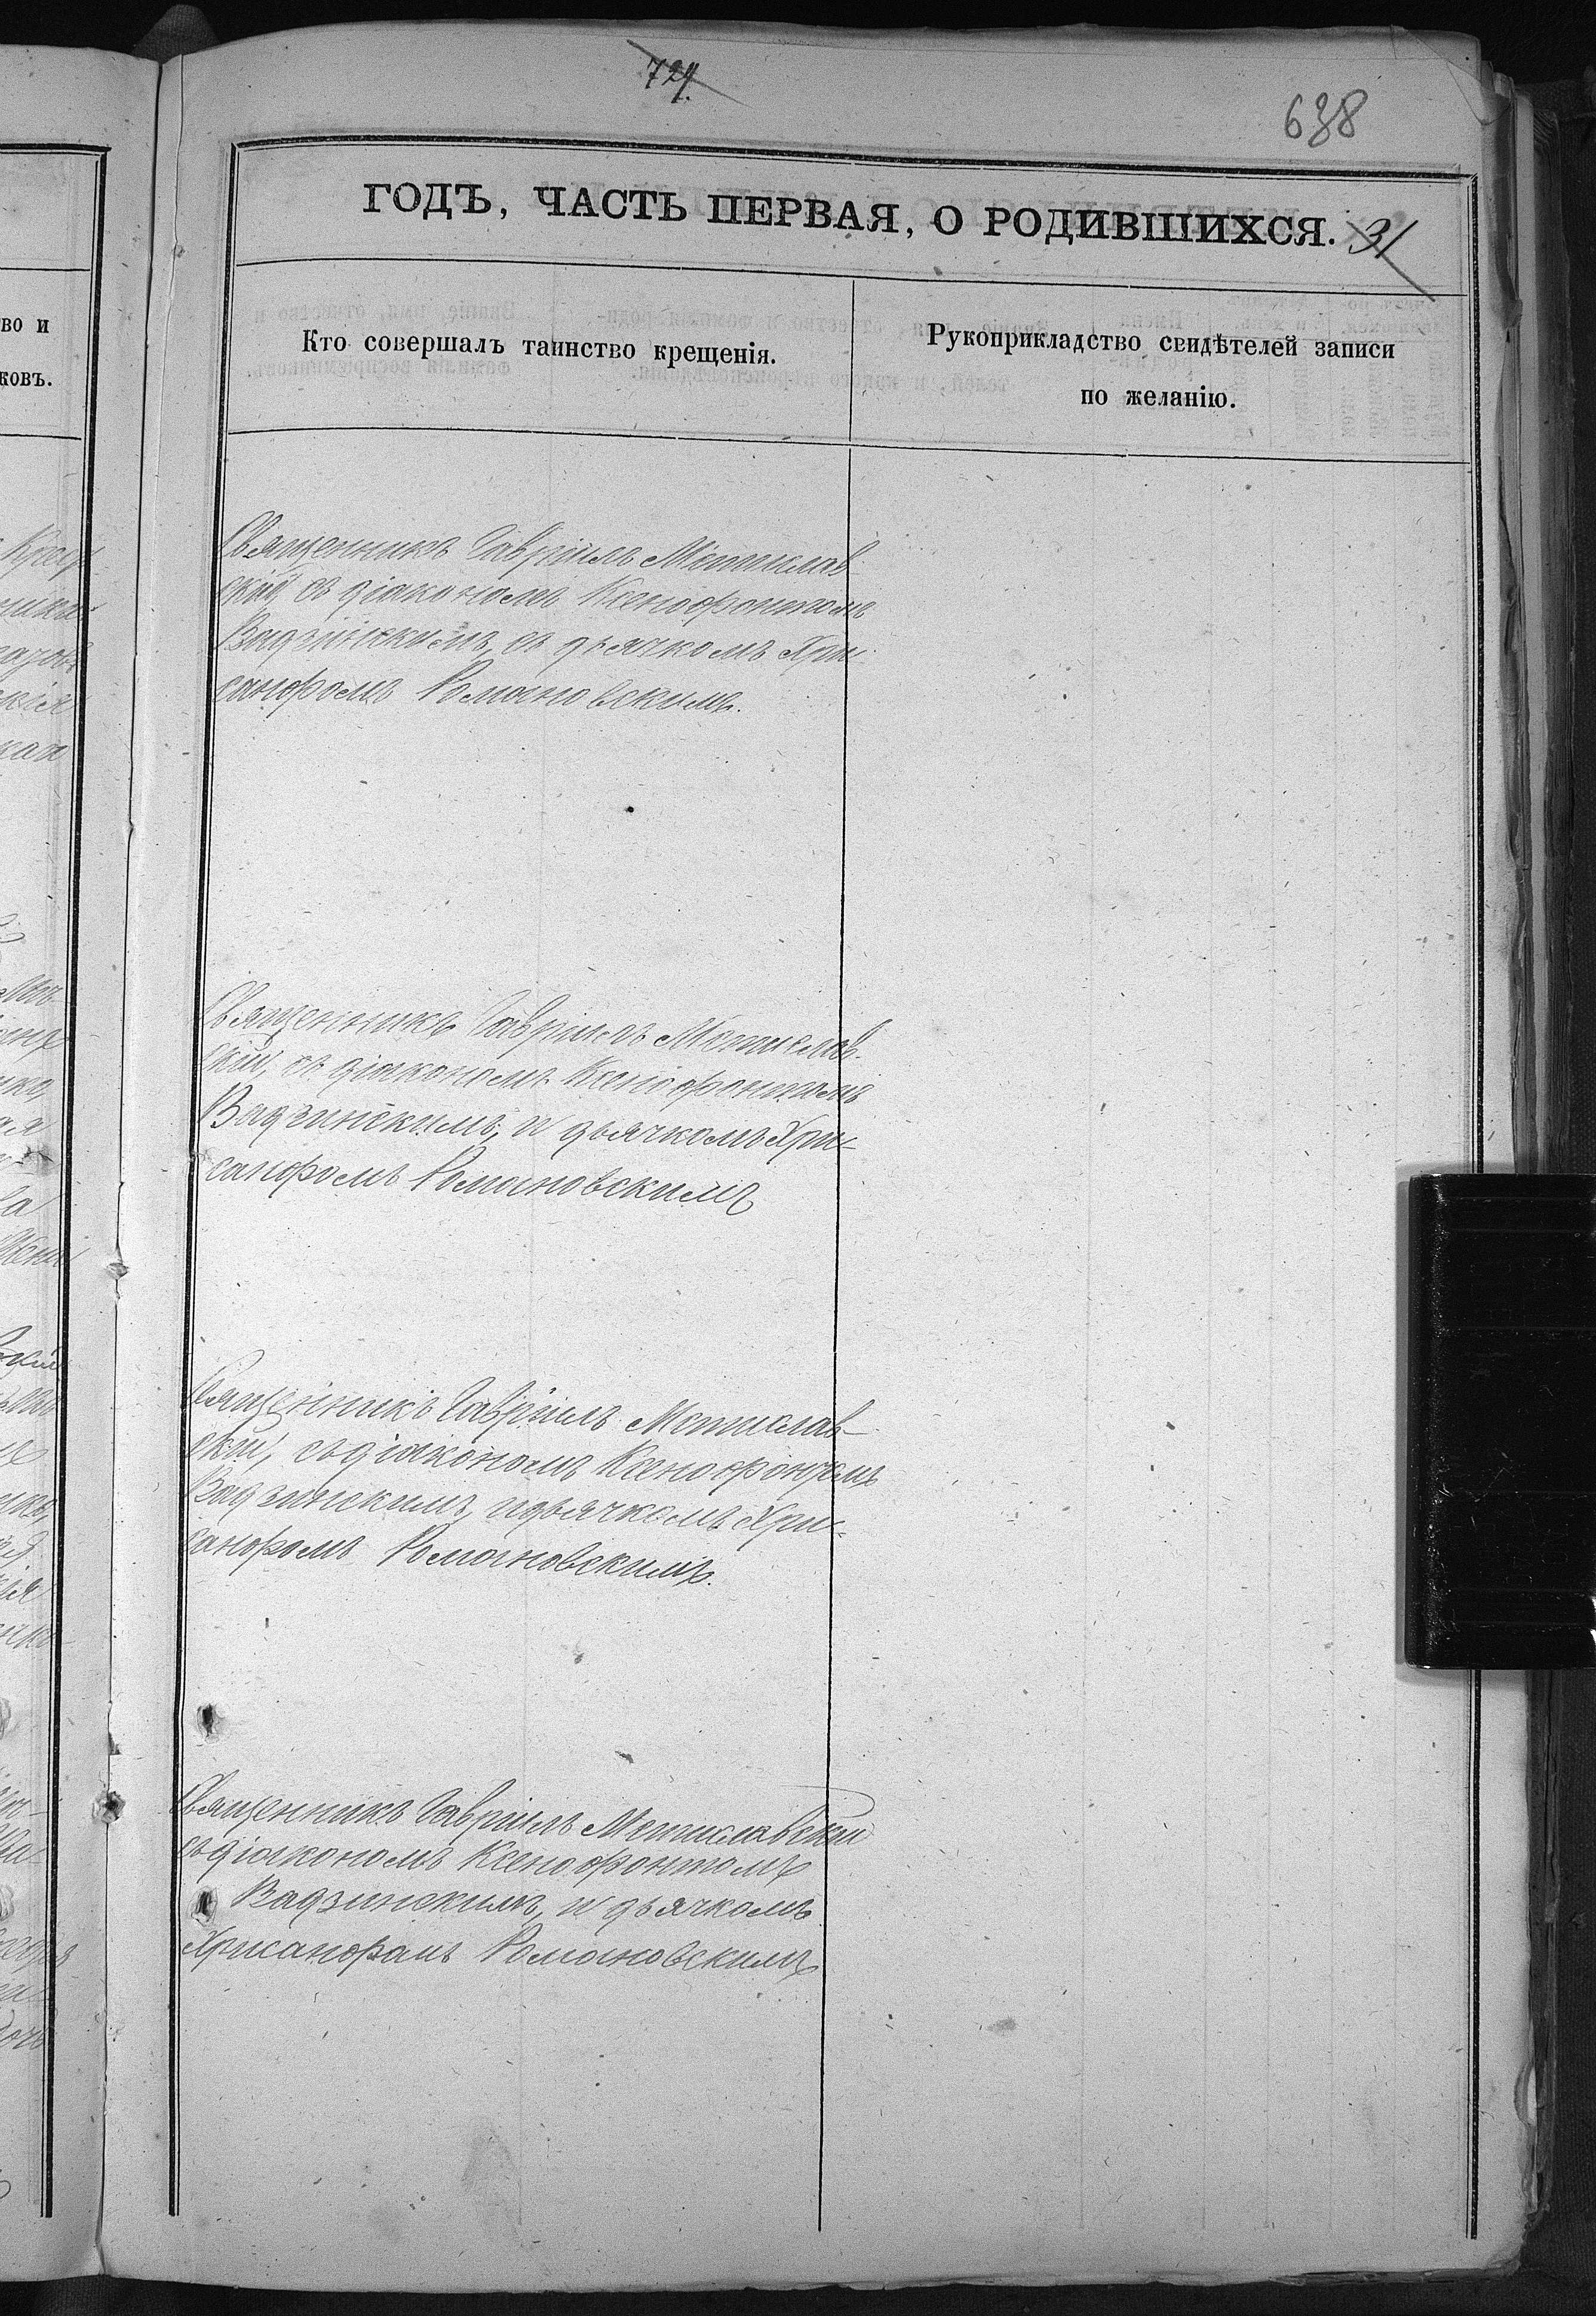 729.
638
ГОДЪ, ЧАСТЬ ПЕРВАЯ, О РОДИВШИХСЯ. 31
во и
ковъ.
Кто совершалъ таинство крещенія.
Рукоприкладство свидѣтелей записи
по желанію.
Священникъ Гавріилъ Мстислав
скій, съ діакономъ Ксенофонтомъ
Вадзинскимъ, съ дьячкомъ Хри-
санфомъ Романовскимъ.
Священникъ Гавріилъ Мстислав-
скій, съ діакономъ Ксенофонтомъ
Вадзинскимъ, и дьячкомъ Хри-
санфомъ Романовскимъ
Священникъ Гавріилъ Мстислав-
скій, съ діакономъ Ксенофонтомъ
Вадзинскимъ, и дьячкомъ Хри-
санфомъ Романовскимъ.
Священникъ Гавріилъ Мстиславскій
съ діакономъ Ксенофонтомъ
Вадзинскимъ, и дьячкомъ
Хрисанфомъ Романовскимъ